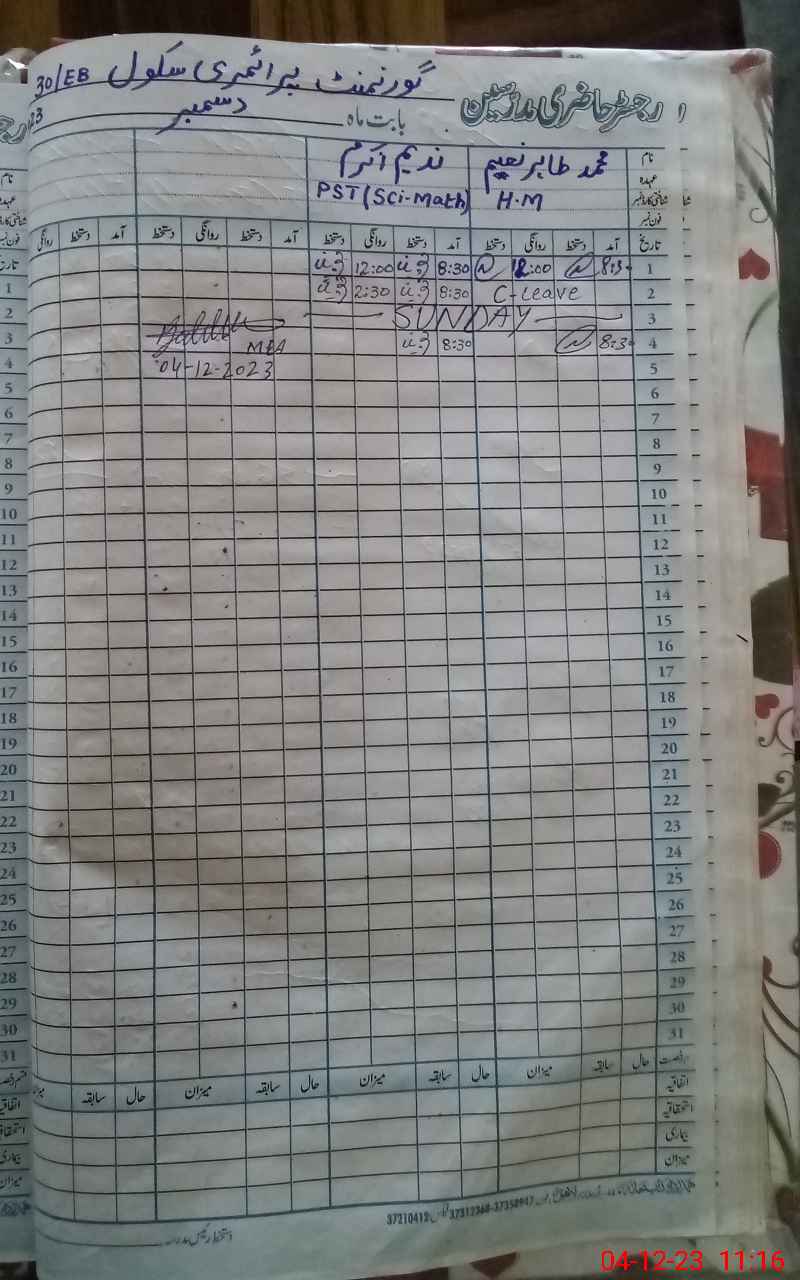 گورنمنٹ پرائمری سکول 30/EB
رجسٹر حاضری مدرسین
بابت ماہ دسمبر 23
نام محمد طاہر نعیم ندیم اکرم
عہدہ H.M PST (Sci-Math)
شناختی کارڈ نمبر
فون نمبر
تاریخ آمد دستخط روانگی دستخط آمد دستخط روانگی دستخط آمد دستخط روانگی دستخط آمد دستخط روانگی
1 8:30 12:00 8:30 12:00
2 C-Leave 8:30 2:30
3 SUNDAY
4 8:30 8:30 MEA
5 04-12-2023
6
7
8
9
10
11
12
13
14
15
16
17
18
19
20
21
22
23
24
25
26
27
28
29
30
31
رخصت حال سابقہ میزان حال سابقہ میزان حال سابقہ میزان حال سابقہ
اتفاقیہ
استحقاقیہ
بیماری
میزان
37312368-37358947 37210412
دستخط رئیس مدرسہ
04-12-23 11:16